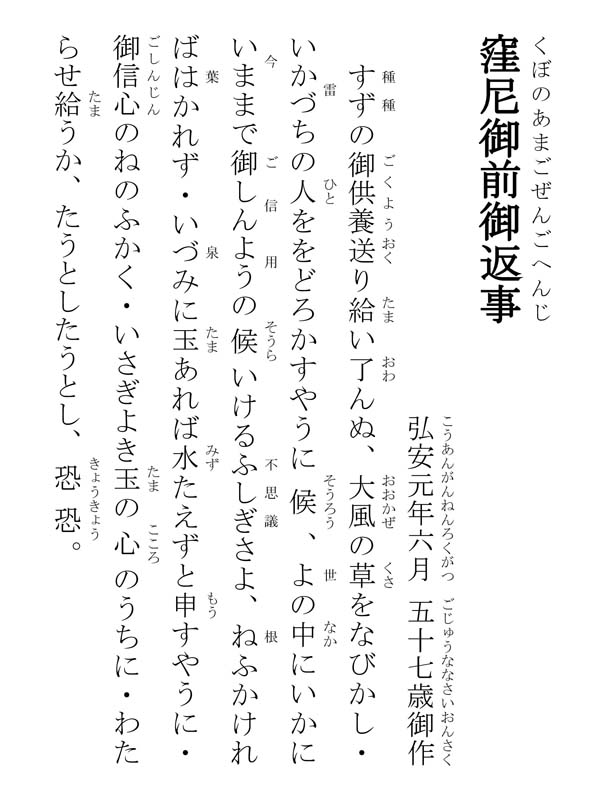 窪尼御前御返事
くぼのあまごぜんごへんじ
弘安元年六月 五十七歳御作
こうあんがんねんろくがつ ごじゅうななさいおんさく
すずの御供養送り給い了んぬ、大風の草をなびかし・
種種 ごくようおく たま おわ おおかぜ くさ
いかづちの人ををどろかすやうに候、よの中にいかに
雷 ひと そうろう 世 なか
いままで御しんようの候いけるふしぎさよ、ねふかけれ
今 ご信用 そうら 不思議 根
ばはかれず・いづみに玉あれば水たえずと申すやうに・
葉 泉 たま みず もう
御信心のねのふかく・いさぎよき玉の心のうちに・わた
ごしんじん たま こころ
らせ給うか、たうとしたうとし、恐恐。
たま きょうきょう